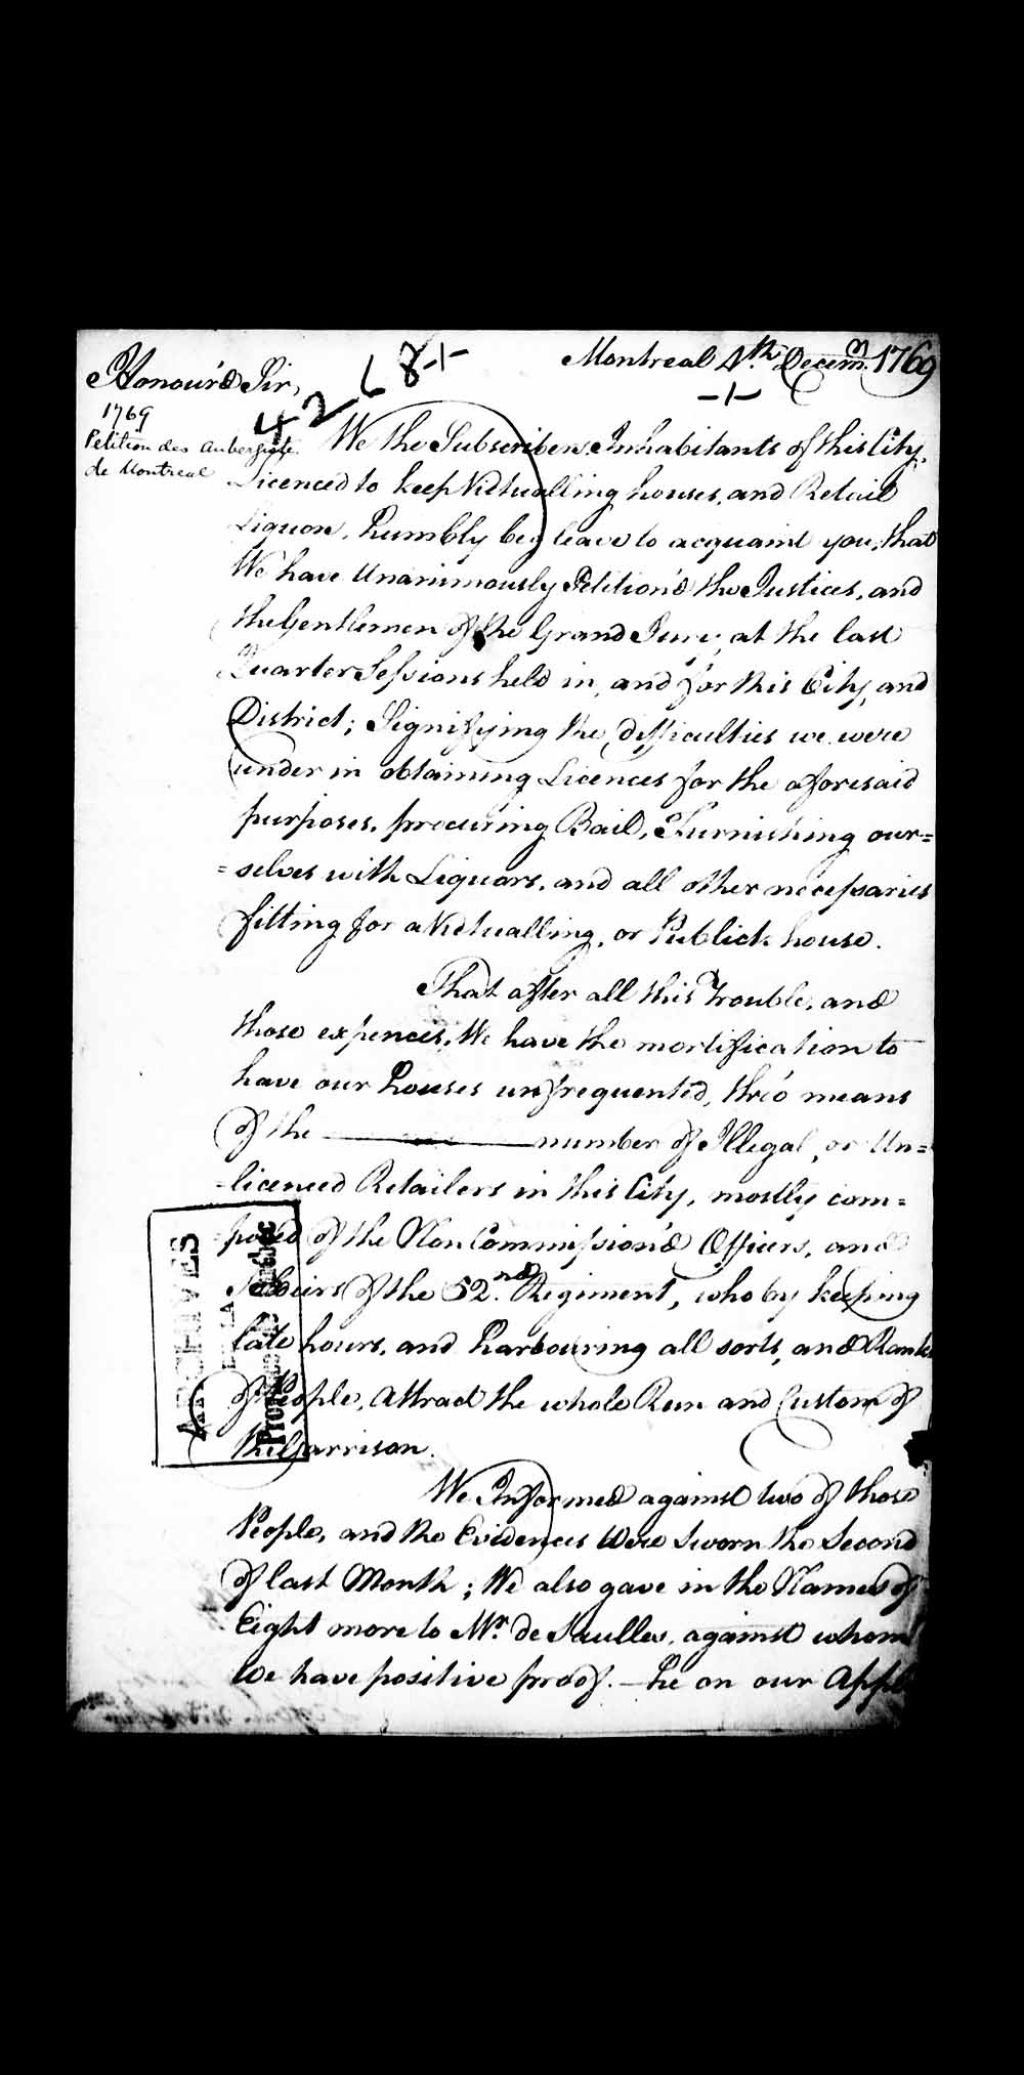 Montreal 4th. Decemr. 1769
Honour'd Sir,
4268-1-
-1-
1769
Petition des Aubergiste
de Montreal
We the Subscribers Inhabitants of this City,
Licenced to keep Victualling houses, and Retail
Liquors, humbly beg leave to acquaint you, that
We have Unanimously Petition'd the Justices, and
the Gentlemen of the Grand Jury, at the last
Quarter Sessions held in, and for this City, and
District; Signifying the difficulties we were
under in obtaining Licences for the aforesaid
purposes, procuring Bail, Furnishing our=
=selves with Liquors, and all other necessaries
fitting for a Victualling, or Publick house.
That after all this Trouble, and
those expences, We have the mortification to
have our houses unfrequented, thro' means
of the number of Illegal, or Un=
=licenced Retailers in this City, mostly com=
posed of the Non Commission'd Officers, and
of the 52nd. Regiment, who by keeping
late hours, and harbouring all sorts, and Ranks
of People, attract the whole Run and Custom of
the Garrison.
We Informed against two of those
People, and the Evidences were sworn the Second
of last Month; We also gave in the Names of
Eight more to Mr. de Saulles, against whom
We have positive proof. - he on our Appl
ARCHIVES
DE LA
Province de Québec